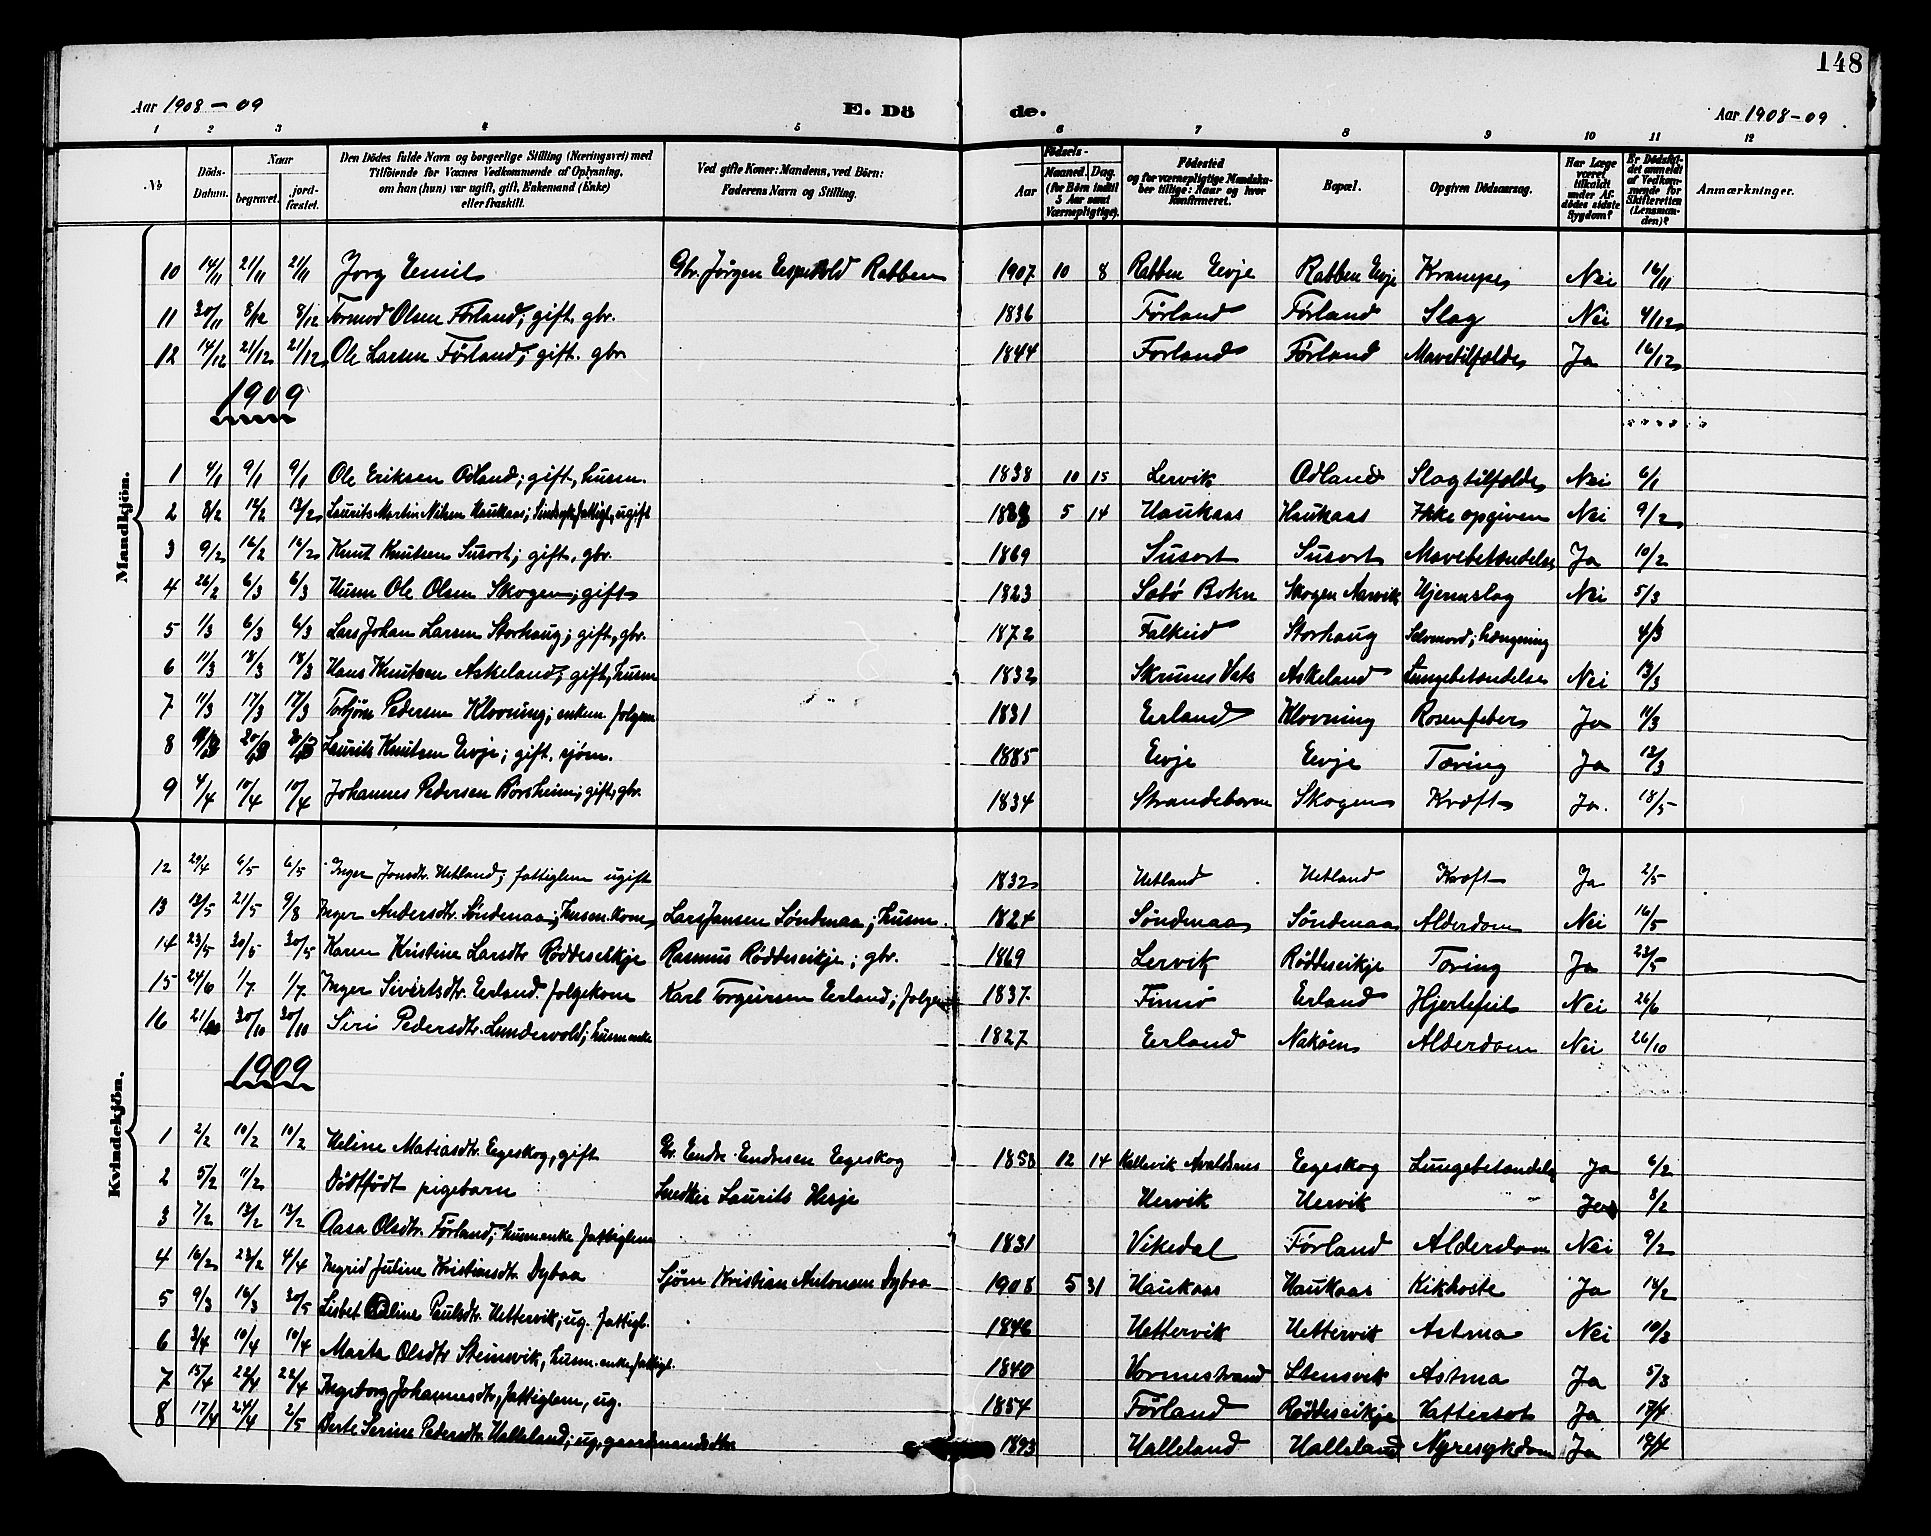 148
Aar 1908-09 E. Dö de. Aar 1908-09
1 2 3 4 5 6 7 8 9 10 11 12
No Döds-Datum. Naar begravet. jord-fæstet. Den Dödes fulde Navn og borgerlige Stilling (Næringsvei) med Tilföiende for Voxnes Vedkommende af Oplysning, om han (hun) var ugift, gift, Enkemand (Enke) eller fraskilt. Ved gifte Koner: Mandens, ved Börn: Faderens Navn og Stilling. Födsels- Aar Maaned. Dag. (for Börn indtil 5 Aar samt Værnepligtige). Födested og for værnepligtige Mandskaber tillige: Naar og hvor konfirmeret. Bopæl. Opgiven Dödsaarsag. Har Læge været tilkaldt under Afdödes sidste Sygdom? Er Dödsfaldet anmeldt af Vedkommende for Skifteretten (Lensmanden)? Anmærkninger.
Mandkjön.
10 14/11 21/11 21/11 Jorg Emil Gbr. Jörgen Espevold Rabben 1907 10 8 Rabben Eivje Rabben Eivje Krampe Nei 16/11
11 30/11 8/12 8/12 Tormod Olsen Førland; gift, gbr. 1836 Førland Førland Slag Nei 4/12
12 14/12 21/12 21/12 Ole Larsen Førland; gift. gbr 1844 Førland Førland Mavetilfælde Ja 16/12
1909
1 4/1 9/1 9/1 Ole Eriksen Odland; gift, husm. 1838 10 15 Lervik Odland Slagtilfælde Nei 6/1
2 8/2 12/2 12/2 Laurits Martin Nilsen Haukaas; Sindssyk, fattigl, ugift 5 14 Haukaas Haukaas Ikke opgiven Nei 9/2
3 9/2 16/2 16/2 Knut Knutsen Susort; gift, gbr. 1869 Susort Susort Mavebetændelse Ja 10/2
4 26/2 6/3 6/3 Husm Ole Olsen Skogen; gift 1823 Sætø Bokn Skogen Aarvik Hjerneslag Nei 5/3
5 1/3 6/3 6/3 Lars Johan Larsen Storhaug; gift, gbr. 1872 Falkeid Storhaug Selvmord; hængning 4/3
6 11/3 18/3 18/3 Hans Knutsen Askeland; gift, husm 1832 Skrunes Vats Askeland Lungebetændelse Nei 13/3
7 11/3 17/3 17/3 Torbjörn Pedersen Klovning; enkem folgem 1831 Eerland Klovning Rosenfeber Ja 11/3
8 20/3 20/3 Laurits Knutsen Eivje; gift. sjöm. 1885 Eivje Eivje Tæring Ja 12/3
9 4/4 10/4 10/4 Johannes Pedersen Borsheim; gift, gbr. 1834 Strandebarm Skogen Kræft Ja. 18/5
Kvindekjön.
12 29/4 6/5 6/5 Inger Jonsdtr. Hetland; fattiglem ugift 1832 Hetland Hetland Kræft Ja 2/5
13 12/5 21/5 9/8 Inger Andersdtr. Søndenaa; husm. kone Lars Jansen Søndenaa; husm. 1824 Søndenaa Søndenaa Alderdom Nei 16/5
14 23/5 30/5 30/5 Karen Kristine Larsdtr Røddeseikje Rasmus Røddeseikje; gbr. 1869 Lervik Røddeseikje Tæring Ja 23/5
15 24/6 1/7 1/7 Inger Sivertsdtr. Eerland. folgekone Karl Torgeirsen Eerland; folgem 1837 Finnø Eerland Hjertefeil Nei 26/6
16 21/10 30/10 30/10 Siri Pedersdtr. Lundervold; husm enke 1827 Eerland Nakøen Alderdom Nei 26/10
1909
1 2/2 10/2 10/2 Heline Matiasdtr. Eegeskog, gift Gbr. Endre Endresen Eegeskog 1858 12 14 Kallevik Avaldsnes Eegeskog Lungebetændelse Ja 6/2
2 5/2 11/2 Dødfødt pigebarn Snedker Laurits Hesje Hervik Hervik " Ja 8/2
3 7/2 13/2 13/2 Aasa Olsdtr. Førland; husm enke fattiglem 1831 Vikedal Førland Alderdom Nei 9/2
4 16/2 23/2 4/4 Ingrid Juline Kristiansdtr Dybaa Sjöm Kristian Antonsen Dybaa 1908 5 31 Haukaas Haukaas Kikhoste Ja 18/2
5 9/3 16/3 30/5 Lisbet Oline Paulsdtr. Hettervik; ug. fattigl. 1846 Hettervik Hettervik Astma Nei 10/3
6 3/4 10/4 10/4 Marta Olsdtr Steinsvik, husm. enke, fattigl. 1840 Vormestrand Stensvik Astma Ja 5/3
7 15/4 22/4 22/4 Ingeborg Johannesdtr, fattiglem, ug. 1854 Førland Røddeseikje Vattersot Ja 17/4
8 17/4 24/4 2/5 Berte Serine Pedersdtr. Halleland; ug. gaardmandsdtr. 1893 Halleland Halleland Nyresykdom Ja 19/4